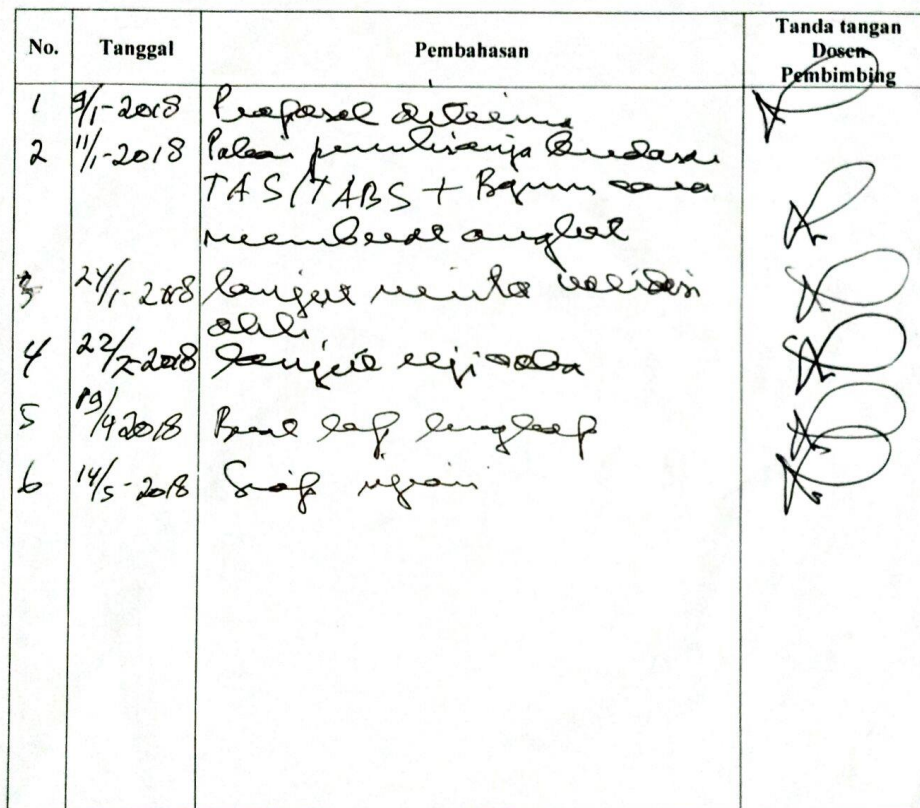 No. Tanggal Pembahasan Tanda tangan
Dosen
Pembimbing
1 9/1-2018 Proposal diterima
2 11/1-2018 Pakai penulisannya
TAS/TABS + cara
membuat angket
3 24/1-2018 lanjut minta validasi
ahli
4 22/2-2018 lanjut uji coba
5 19/4 2018 Buat lap lengkap
6 14/5-2018 Siap ujian